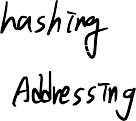 hashing
Addressing